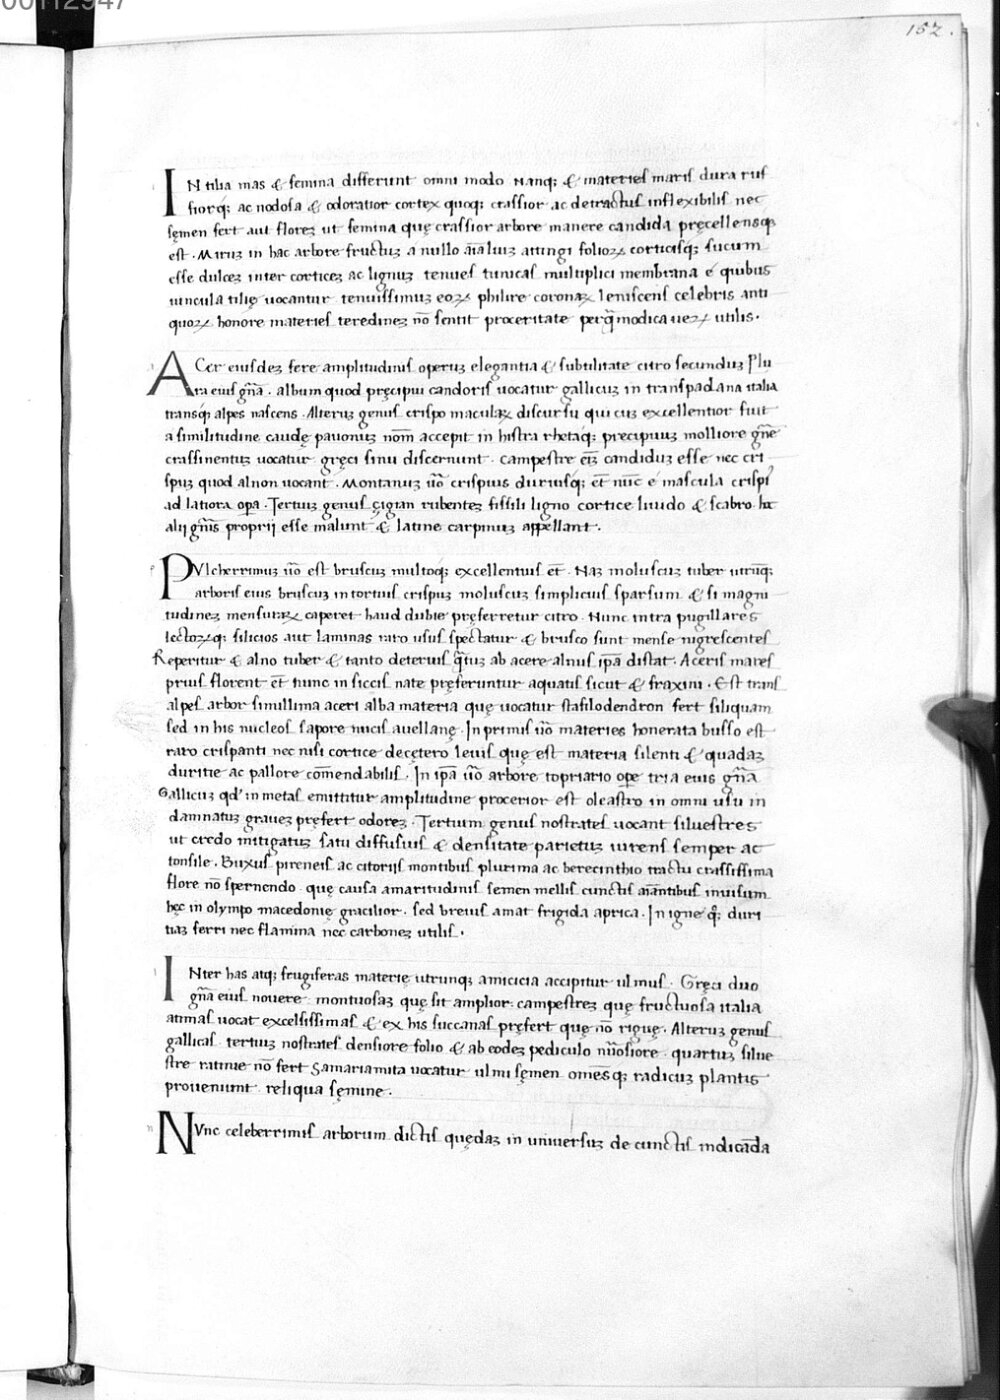 00112947
152.
IN tilia mas & femina differunt omni modo Nanq; & materies maris dura ruf
fiorq́; ac nodosa & odoratior cortex quoq; crassior ac detractus inflexibilis nec
sęmen fert aut florez ut femina quę crassior arbore manere candida pręcellensq;
est. Miruz in hac arbore fructuz a nullo aīaluiz attingi folioꝝ corticisq; sucum
esse dulcez inter corticez ac lignuz tenues tunicas multiplici membrana é quibus
uincula tilię uocantur tenuissimuz eoꝝ philire coronaꝝ leniscens celebris anti
quoꝝ honore materies teredinez nō sentit proceritate perq̄ modica ueꝝ utilis.
ACer eiusdez fere amplitudinis operuz elegantia & subtilitate citro secunduz Plu
ra eius gn̄a. album quod pręcipui candoris uocatur gallicuz in transpadana italia
transq́ alpes nascens. Alteruz genus crispo maculaꝝ discursu qui cuz excellentior fuit
a similitudine caudę pauonuz nom̄ accepit in histra rhetaq; precipuuz molliore gn̄e
crassinentuz uocatur gręci sinu discernunt. campestre ei̅z candiduz esse nec cri
spuz quod alnon uocant. Montanuz ūo crispius duriusq; et̄ nūc e mascula crispi
ad latiora opa. Tertuiz genus çigian rubentez fissili ligno cortice liuido & scabro. hc
alij gn̄is proprij esse malunt & latine carpinuz appellant.
PUlcherrimuz ūo est bruscuz multoq; excellentius et̄. Naz moluscuz tuber utrūq;
arboris eius bruscuz intortius crispuz moluscuz simplicius sparsum & si magni
tudinez mensaꝝ caperet haud dubie pręferretur citro. Nunc intra pugillares
lectoꝝq; silicios aut laminas raro usus spectatur & brusco sunt mense nigrescentes
Reperitur & alno tuber & tanto deterius q̄tuz ab acere alnus ip̄a distat. Aceris mares
prius florent et̄ nunc in siccis nate pręferuntur aquatis sicut & fraxini. Est trans
alpes arbor simillima aceri alba materia quę uocatur stafilodendron fert siliquam
sed in his nucleos sapore nucis auellanę. In primis ūo materies honerata busso est
raro crispanti nec nisi cortice dęcętero leuis quę est materia silenti & quadaz
duritie ac pallore com̄endabilis. In ip̄a ūo arbore topriario ope tria eius gn̄a
Gallicuz qd' in metas emittitur amplitudine procerior est oleastro in omni usu in
damnatuz grauez pręfert odorez. Tertium genus nostrates uocant siluestres
ut credo mitigatuz satu diffusius & densitate parietuz uirens semper ac
tonsile. Buxus pireneis ac citoriis montibus plurima ac berecinthio tractu crassissima
flore nō spernendo. quę causa amaritudinis semen mellis cunctis aīantibus inuisum
hęc in olympo macedonię gracilior. sed breuis amat frigida aprica. In igne q; duri
tiaz ferri nec flamina nec carbonez utilis.
INter has atq; frugiferas materię utrunq; amicicia accipitur ulmus. Gręci duo
gn̄a eius nouere. montuosaz quę sit amplior: campestrez quę fructuosa italia
atinias uocat excelsissimas & ex his succanas pręfert quę nō riguę. Alteruz genus
gallicas. tertuiz nostrates densiore folio & ab eodez pediculo nūosiore. quartuz silue
stre ratinie nō fert Samariamita uocatur ulmi sęmen omēsq; radicuz plantis
proueniunt. reliqua sęmine.
NVnc celeberrimis arborum dictis quędaz in uniuersuz de cunctis indicāda